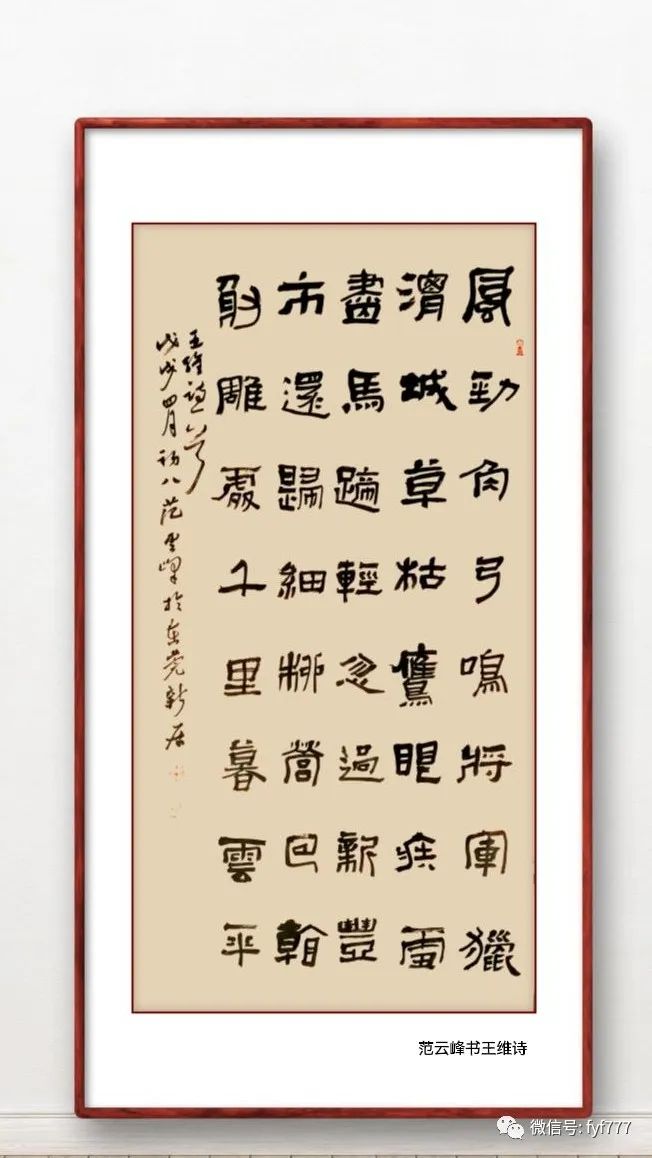 風勁角弓鳴將軍獵
渭城草枯鷹眼疾雪
盡馬蹄輕忽過新豐
市還歸細柳營回看
射雕處千里暮雲平
王维诗一首
戊戌四月初八范云峰於东莞新居
范云峰书王维诗
微信号: fyf777